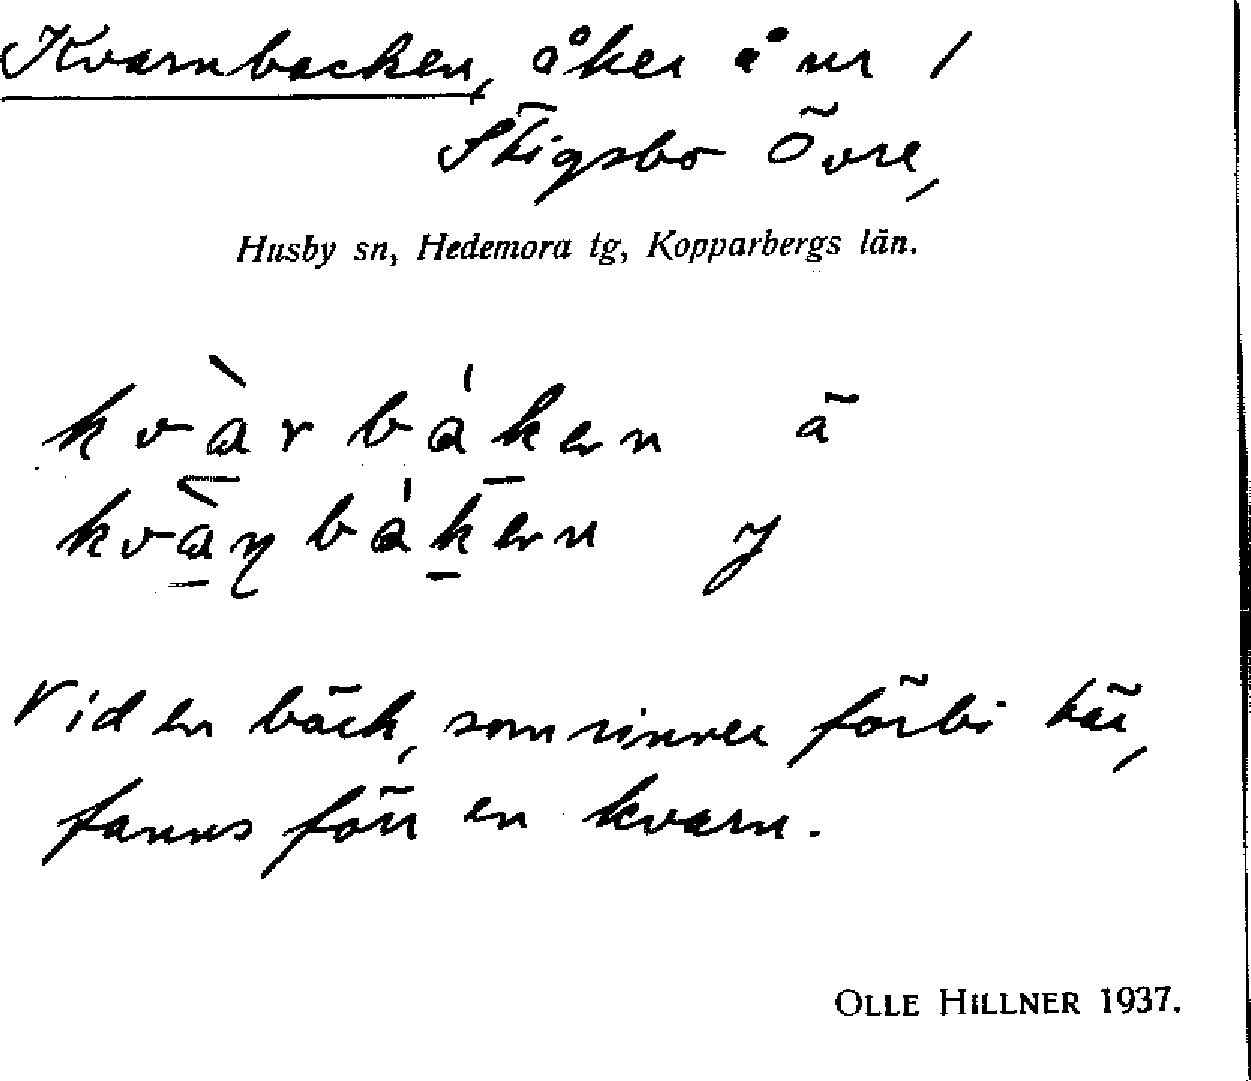 Kvarnbacken, åker å nr 1
Stigsbo Övre,
Husby sn, Hedemora tg, Kopparbergs län.
kvàr báken ä
kvàn báken y
Vid en bäck, som rinner förbi här,
fanns förr en kvarn.
OLLE HILLNER 1937.